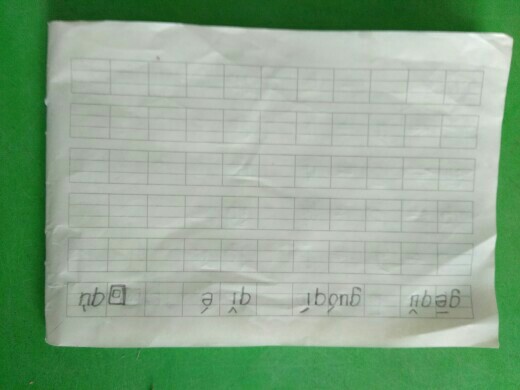 gēqǔ guóqí qǐ é qù